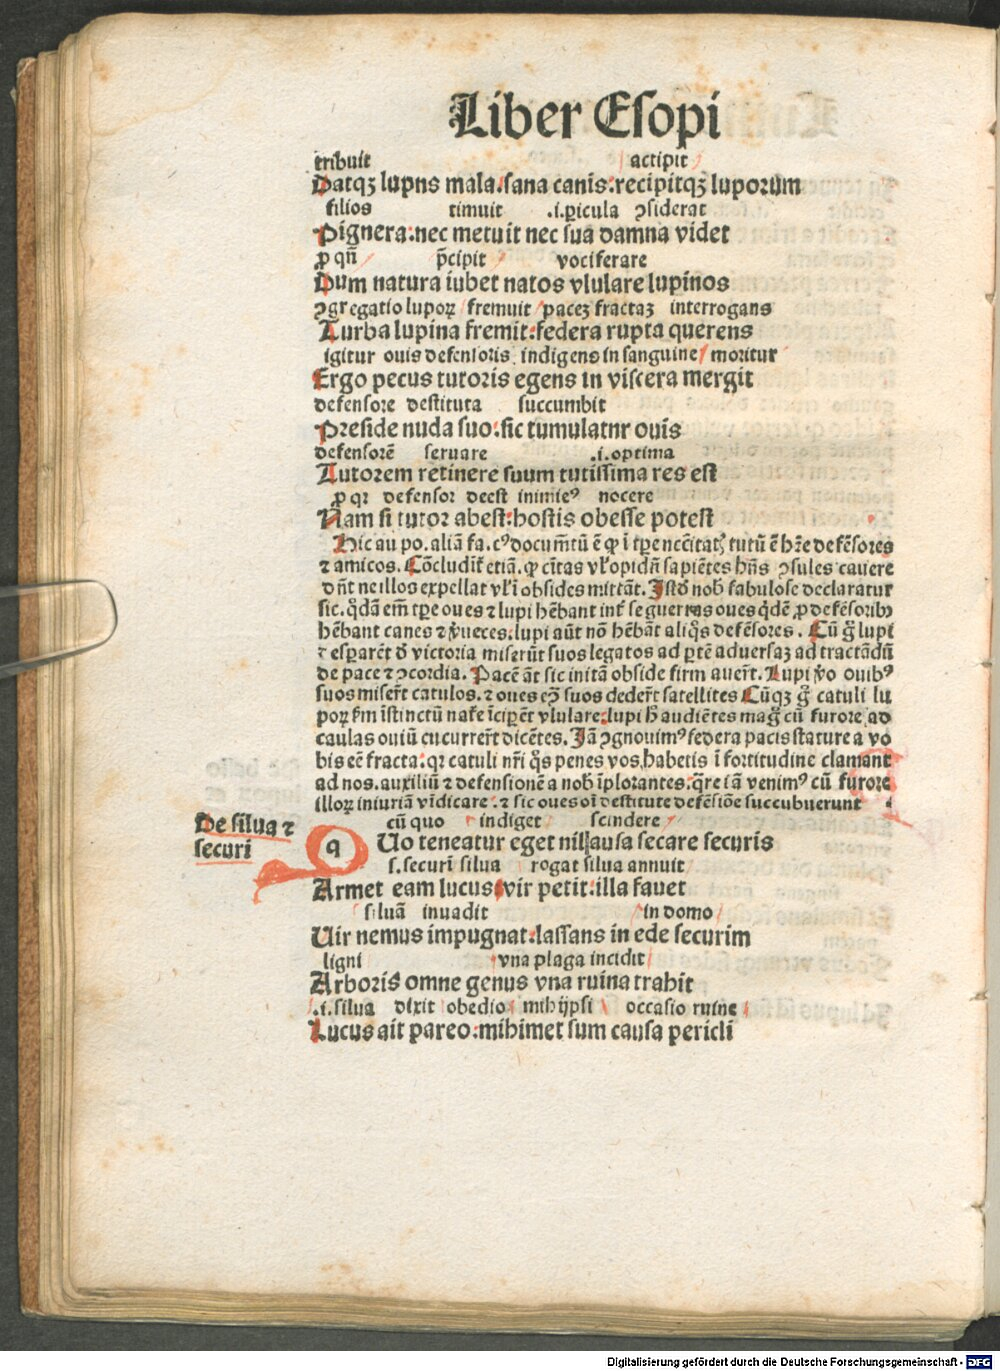 Liber Esopi
tribuit actipit
Datqꝫ lupns mala. sana canis: recipitqꝫ luporum
filios timuit .i. ꝑicula ꝯsiderat
Pignera: nec metuit nec sua damna videt
ꝓ qn̄ p̄cipit vociferare
Dum natura iubet natos vlulare lupinos
ꝯgregatio lupoꝝ fremuit paceꝫ fractaꝫ interrogans
Turba lupina fremit: federa rupta querens
igitur ouis defensoris indigens in sanguine moritur
Ergo pecus tutoris egens in viscera mergit
defensore destituta succumbit
Preside nuda suo: sic tumulatnr ouis
defensorē seruare .i. optima
Tutorem retinere suum tutissima res est
ꝓ qꝛ defensor deest inimicꝰ nocere
Nam si tutor abest: hostis obesse potest
Hic au po. aliā fa. cꝰ documētū ē ꝙ ī tꝑe tutū ē hr̄e defēsores
ꞇ amicos. Cōcludit̄ etiā. ꝙ cītas vl̓ opidū sapiētes hn̄s ꝯsules cauere
dn̄t ne illos expellat vl̓ ī obsides mittāt. Istd̓ nob̓ fabulose declaratur
sic. qd̓dā em̄ tꝑe oues ꞇ lupi hēbant int̓ se guerras oues qd̓ē ꝓ defēsoribꝫ
hēbant canes ꞇ v̓ueces. lupi aūt nō hēbāt aliq̄s defēsores. Cū g̓ lupi
ꞇ esꝑarēt d̓ victoria miserūt suos legatos ad ꝑtē aduersaꝫ ad tractādū
de pace ꞇ ꝯcordia. Pacē āt sic initā obside firmauer̄t. Lupi v̓o ouibꝰ
suos miser̄t catulos. ꞇ oues eꝫ suos deder̄t satellites Cūqꝫ g̓ catuli lu
poꝝ ẜm īstinctū nat̓e īciꝑēt vlulare: lupi h̓ audiētes mag̓ cū furore ad
caulas ouiū cucurrer̄t dicētes. Iā ꝯgnouimꝰ federa pacis stature a vo
bis eē fracta: qꝛ catuli nr̄i q̄s penes vos habetis ī fortitudine clamant
ad nos. auxiliū ꞇ defensionē a nob̓ īplorantes: q̄re iā venimꝰ cū furore
illoꝝ iniuriā vīdicare. ꞇ sic oues oī destitute defēsiōe succubuerunt
De silua ꞇ
securi
cū quo indiget scindere
q Uo teneatur eget nil ausa secare securis
s. securī silua rogat silua annuit
Armet eam lucus vir petit: illa fauet
siluā inuadit in domo
Uir nemus impugnat. lassans in ede securim
ligni vna plaga incidit
Arboris omne genus vna ruina trahit
.i. silua dixit obedio mihi ip̄si occasio ruine
Lucus ait pareo: mihimet sum causa pericli
Digitalisierung gefördert durch die Deutsche Forschungsgemeinschaft - DFG